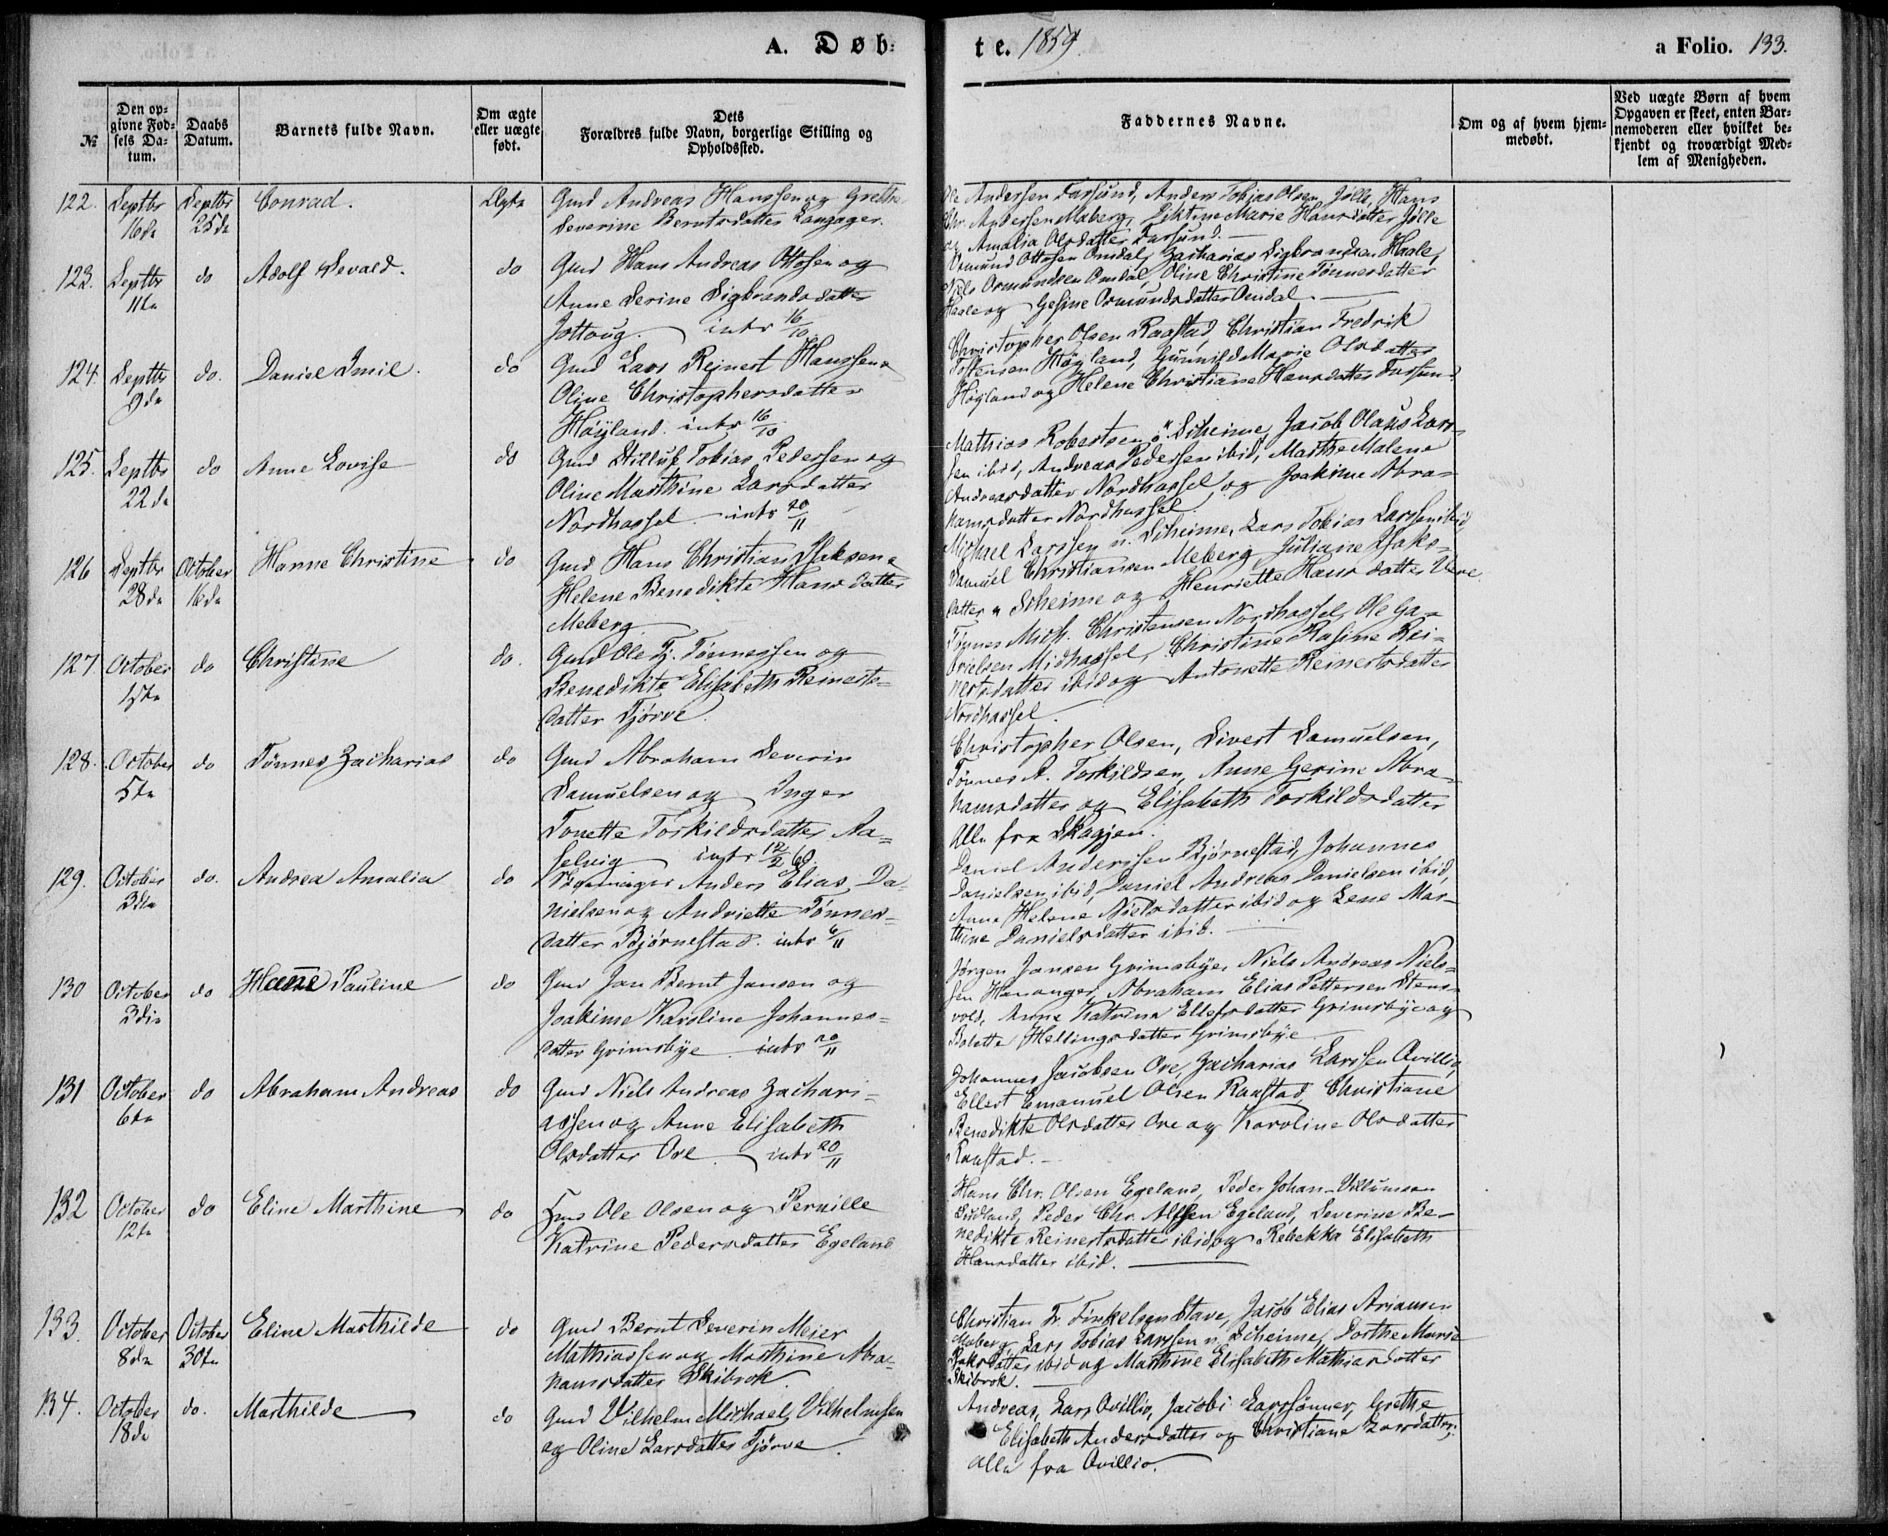 A. Døb=
te. 1859.
a Folio. 133.
№
Den op=
givne Fød=
sels Da=
tum.
Daabs
Datum.
Barnets fulde Navn.
Om ægte
eller uægte
født.
Dets
Forældres fulde Navn, borgerlige Stilling og
Opholdssted.
Faddernes Navne.
Om og af hvem hjem=
medøbt.
Ved uægte Børn af hvem
Opgaven er skeet, enten Bar=
nemoderen eller hvilket be=
kjendt og troværdigt Med=
lem af Menigheden.
122. Septbr 16de
Septbr 25de
Conrad.
Ægte
Gmd Andreas Hanssen og Grethe
Severine Berntsdatter Langager.
Ole Andersen Farsund, Anders Tobias Olsen Jølle, Hans
Chr. Andersen Maberg, Marie Hansdatter Jølle
og Amalia Olsdatter Farsund.
123. Septbr 11te
do
Adolf Sevald.
do
Gmd Hans Andreas Ottosen og
Anne Serine Sigbrandsdatter
Jottoug. intr 16/10
Ormund Ottosen Omdal, Zacharias Sigbrandsen Haale,
Niels Ormundsen Omdal, Oline Christine Tønnesdatter
Haale og Gesine Ormundsdatter Omdal.
124. Septbr 9de
do.
Daniel Emil.
do
Gmd Lars Reinert Hanssen &
Oline Christophersdatter
Høyland. intr 16/10
Christopher Olsen Raastad, Christian Fredrik
Tostensen Høyland, Gunnild Marie Olsdatter
Høyland og Helene Christiane Hansdatter Farsund
125. Septbr 22de
do
Anne Lovise
do
Gmd Tobias Pedersen og
Oline Marthine Larsdatter
Nordhassel intr 20/11
Mathias Robertsen ø. Skeime, Jacob Olaus Lars-
sen ibid, Andreas Pedersen ibid, Marthe Malene
Andreasdatter Nordhassel og Joakime Abra-
hamsdatter Nordhassel
126 Septbr 28de
October 16de
Hanne Christine
do
Gmd Hans Christian Isaksen &
Helene Benedikte Hansdatter
Meberg
Michael Larssen n. Skeime, Lars Tobias Larssen ibid
Samuel Christiansen Meberg, Juliane Isaks-
datter n Skeime og Henriette Hansdatter Vere
127 October 15te
do
Christine
do.
Gmd Ole Tj. Tønnessen og
Benedikte Elisabeth Reinerts-
datter Tjørve.
Tønnes Mich. Christensen Nordhassel, Ole Ga-
brielsen Midhassel, Christine Rasine Rei-
nertsdatter ibid og Antonette Reinertsdatter
Nordhassel.
128. October 5te
do
Tønnes Zacharias
do
Gmd Abraham Severin
Samuelsen og Inger
Tonette Torkildsdatter Aa-
selvig intr 12/2 60.
Christopher Olsen, Sivert Samuelsen,
Tønnes A. Torkildsen, Anne Gerine Abra-
hamsdatter og Elisabeth Torkildsdatter
Alle fra Skagjen.
129. October 3die
do.
Andrea Amalia
do
Anders Elias Da-
nielsen og Andriette Tønnes-
datter Bjørnestad. intr 6/11
Daniel Anderssen Bjørnestad, Johannes
Danielsen ibid, Daniel Andreas Danielsen ibid,
Anne Helene Nielsdatter ibid og Lene Mar-
thine Danielsdatter ibid.
130 October 3die
do
Hanne Pauline
do
Gmd Jan Bernt Jansen og
Joakime Karoline Johannes-
datter Grimsbye intr 20/11
Jørgen Jansen Grimsbye, Niels Andreas Niels-
sen Hananger, Abraham Elias Pettersen Stens-
vold, Anne Katrine Ellefsdatter Grimsbye og
Bolette Hellingsdatter Grimsbye
131 October 6te
do
Abraham Andreas
do
Gmd Niels Andreas Zachari-
assen og Anne Elisabeth
Olsdatter Ore intr 20/11
Johannes Jacobsen Ore, Zacharias Larssen Qvillio,
Ellert Emanuel Olsen Raastad, Christiane
Benedikte Olsdatter Ore og Karoline Olsdatter
Raastad.
132 October 12te
do
Eline Marthine
do
Ole Olsen og Pernille
Katrine Pedersdatter Egeland
Hans Chr. Olsen Egeland, Peder Johan Villumsen
Sudland, Peder Chr. Alfsen Egeland, Severine Be-
nedikte Reinertsdatter ibid og Rebekka Elisabeth
Hansdatter ibid.
133. October 8de
October 30te
Eline Marthilde
do
Gmd Bernt Severin Meier
Mathiassen og Marthine Abra-
hamsdatter Skibrok.
Christian Fr. Finkelsen Stave, Jacob Elias Arjansen
Maberg, Lars Tobias Larssen n. Skeime, Dorthe Marie
Isaksdatter ibid og Marthine Elisabeth Mathiasdatter
Skibrok.
134. October 18de
do.
Marthilde
do
Gmd Vilhelm Michael Vilhelmsen
og Oline Larsdatter Tjørve.
Andreas, Lars Qvillio, Jacobi Larssønner, Grethe
Elisabeth Andersdatter og Christiane Larsdatter,
alle fra Qvillio.